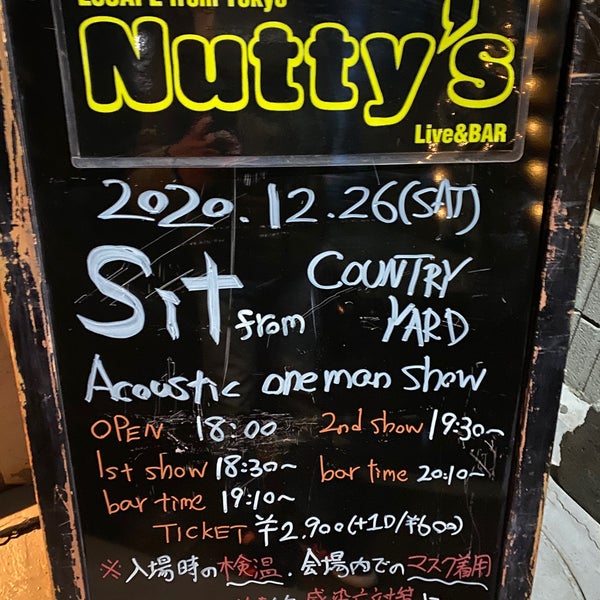 ESCAPE from Tokyo
Nutty's
Live&BAR
2020.12.26(SAT)
Sit from COUNTRY YARD
Acoustic one man show
OPEN 18:00 2nd show 19:30~
1st show 18:30~ bar time 20:10~
bar time 19:10~
TICKET ¥2.900(+1D/¥600)
※入場時の検温.会場内でのマスク着用
感染症対策に